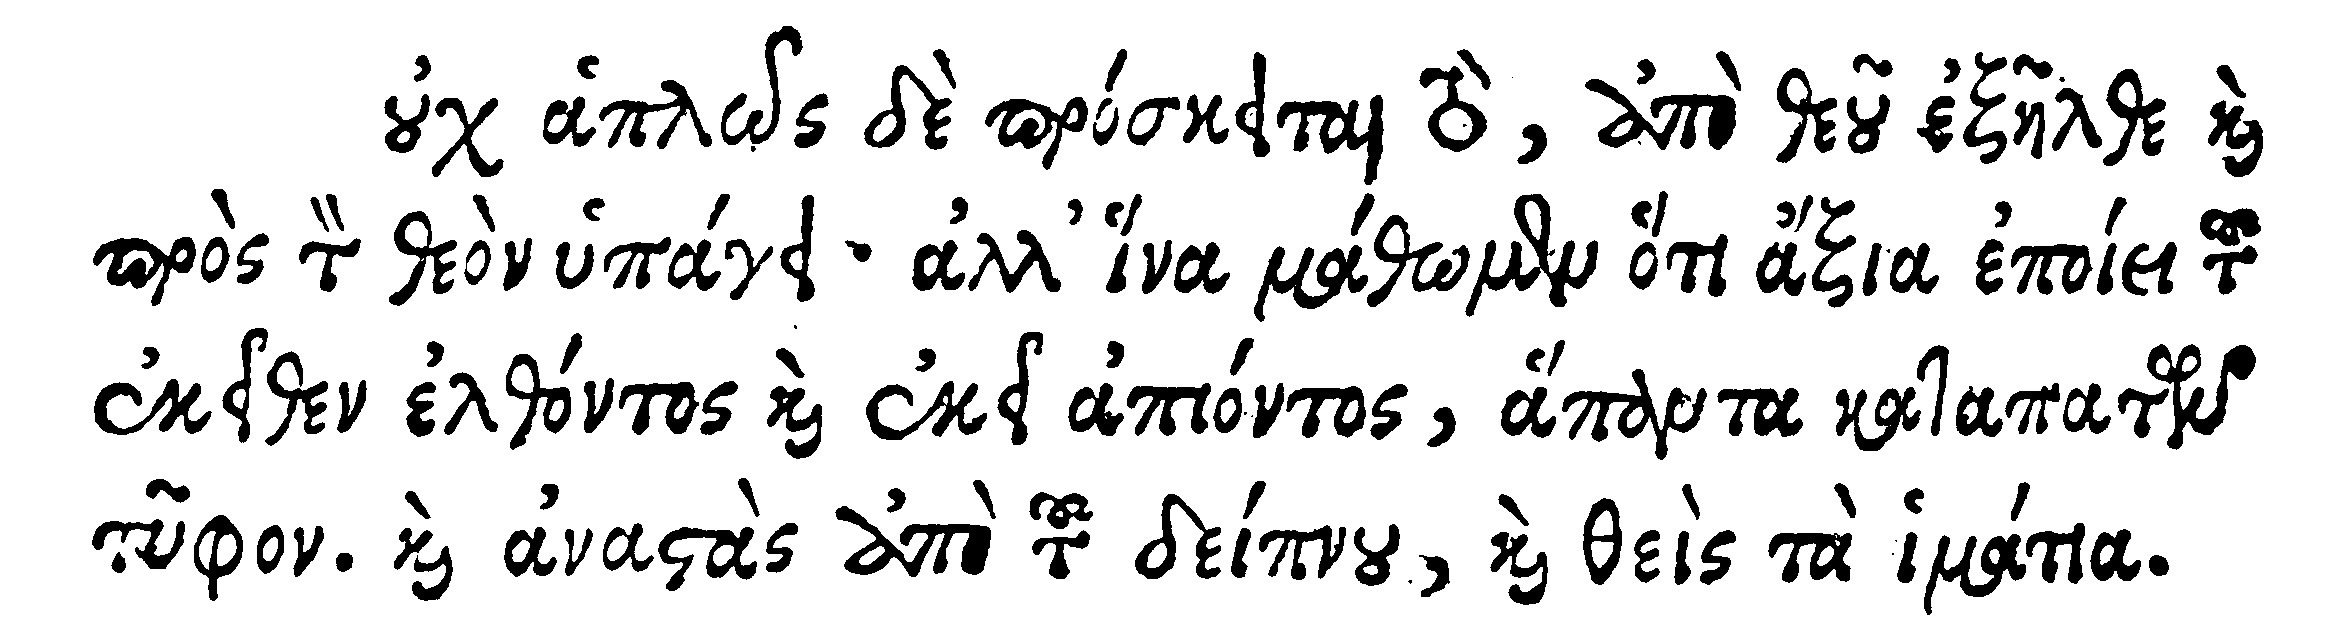 οὐχ ἁπλῶς δὲ πρόσκειται τὸ, ἀπὸ θεοῦ ἐξῆλθε καὶ
πρὸς τὸν θεὸν ὑπάγει· ἀλλ' ἵνα μάθωμεν ὅτι ἄξια ἐποίει τοῦ
ἐκεῖθεν ἐλθόντος καὶ ἐκεῖ ἀπιόντος, ἅπαντα καταπατῶν
τῦφον. καὶ ἀναστὰς ἀπὸ τοῦ δείπνου, καὶ θεὶς τὰ ἱμάτια.